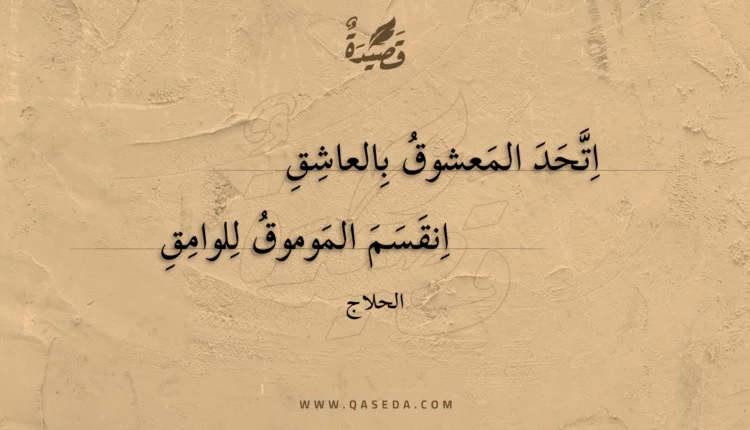 قَصِيدَةٌ
اِتَّحَدَ المَعشوقُ بِالعاشِقِ
اِنقَسَمَ المَوموقُ لِلوامِقِ
الحلاج
WWW.QASEDA.COM